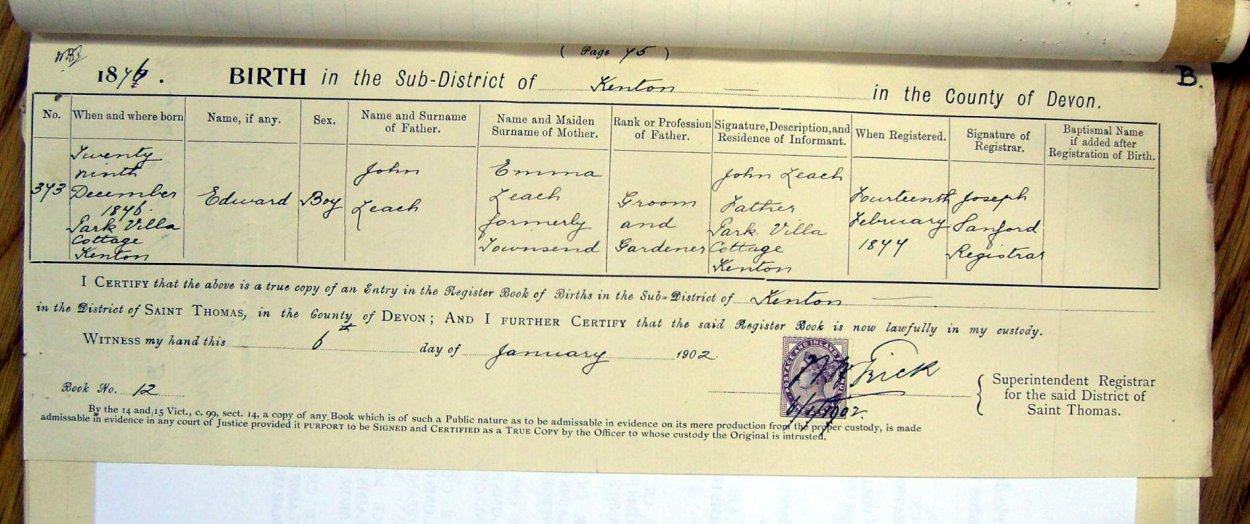 ( Page 75 )
B.
1876. BIRTH in the Sub-District of Kenton in the County of Devon.
No. When and where born Name, if any. Sex. Name and Surname of Father. Name and Maiden Surname of Mother. Rank or Profession of Father. Signature, Description, and Residence of Informant. When Registered. Signature of Registrar. Baptismal Name if added after Registration of Birth.
373 Twenty ninth December 1876 Park Villa Cottage Kenton Edward Boy John Leach Emma Leach formerly Townsend Groom and Gardener John Leach Father Park Villa Cottage Kenton Fourteenth February 1877 Joseph Sanford Registrar
I CERTIFY that the above is a true copy of an Entry in the Register Book of Births in the Sub-District of Kenton
in the District of SAINT THOMAS, in the County of DEVON; AND I FURTHER CERTIFY that the said Register Book is now lawfully in my custody.
WITNESS my hand this 6th day of January 1902.
POSTAGE AND INLAND
Superintendent Registrar
for the said District of
Saint Thomas.
Book No. 12
By the 14 and 15 Vict., c. 99, sect. 14, a copy of any Book which is of such a Public nature as to be admissible in evidence on its mere production from the proper custody, is made
admissable in evidence in any court of Justice provided it PURPORT to be SIGNED and CERTIFIED as a TRUE COPY by the Officer to whose custody the Original is intrusted.